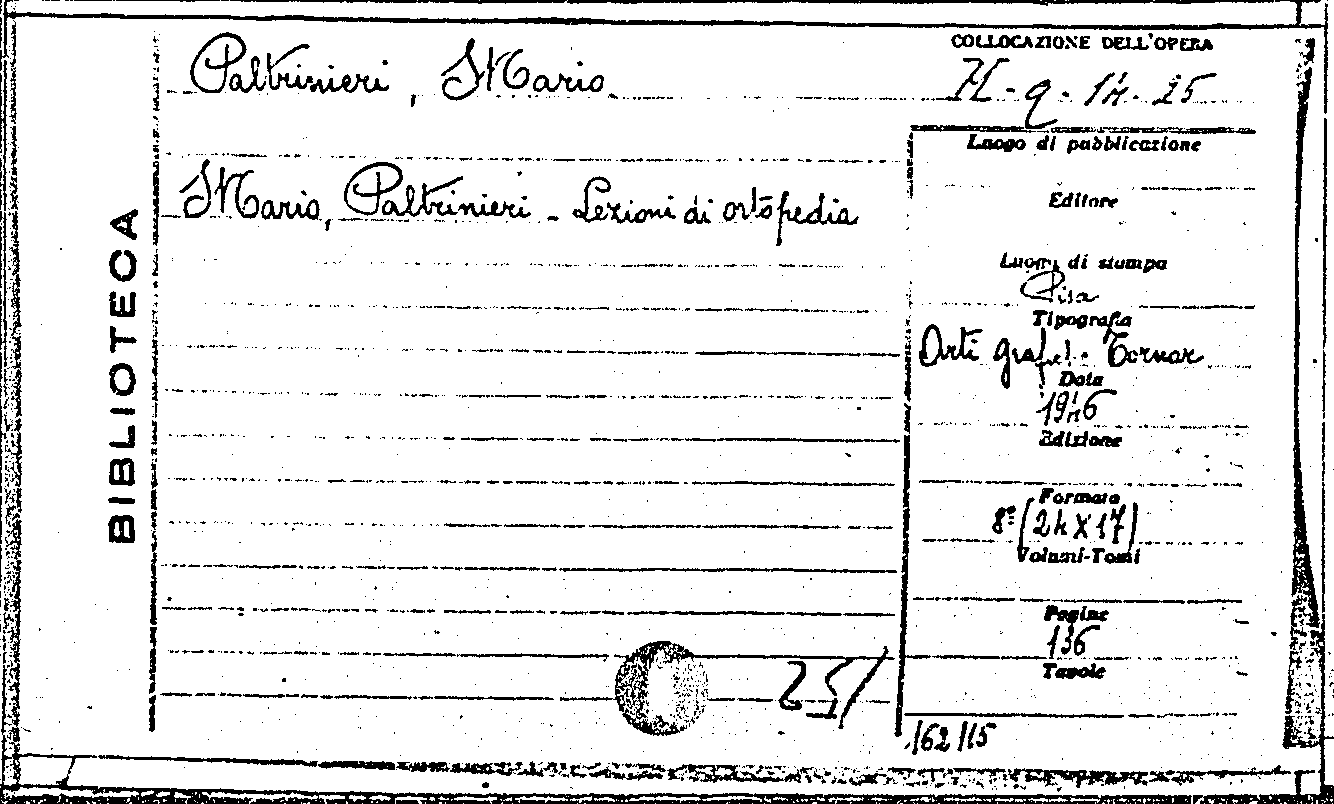 BIBLIOTECA
Paltrinieri, Mario.
COLLOCAZIONE DELL'OPERA
H - q - 14 - 25
Mario, Paltrinieri - Lezioni di ortopedia
Luogo di pubblicazione
Editore
Luogo di stampa
Pisa
Tipografia
Arti graf. Tornar
Data
1946
Edizione
Formato
8º (24 X 17)
Volumi-Tomi
Pagine
136
Tavole
25/
162115